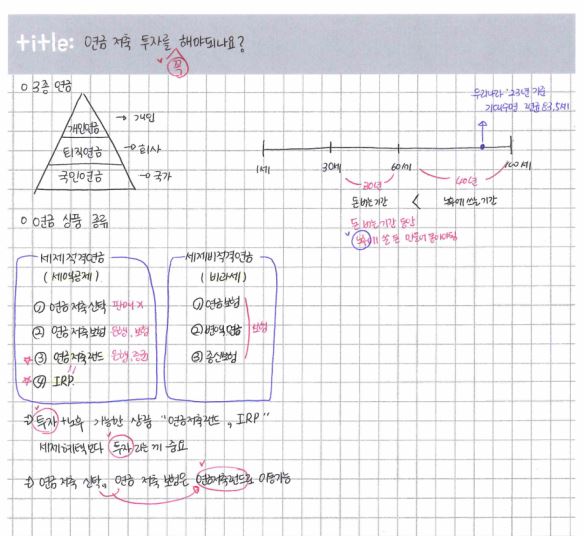 title: 연금 저축 투자를 해야되나요?
꼭
○ 3층 연금
개인연금 → 개인
퇴직연금 → 회사
국민연금 → 국가
우리나라 '23년 기준
기대수명 평균 83.5세
1세 30세 60세 100세
30년 40년
돈버는기간 < 노후에 쓰는기간
돈 버는기간 동안
노후에 쓸 돈 만들어 놓아야됨
○ 연금 상품 종류
세제적격연금
(세액공제)
① 연금저축신탁 판매 X
② 연금저축보험 은행, 보험
☆ ③ 연금저축펀드 은행, 증권
☆ ④ IRP
세제비적격연금
(비과세)
① 연금보험
② 변액연금
③ 종신보험
보험
투자 + 노후 가능한 상품 "연금저축펀드, IRP"
세제혜택보다 투자라는게 중요
연금 저축 신탁, 연금 저축 보험은 연금저축펀드로 이동가능